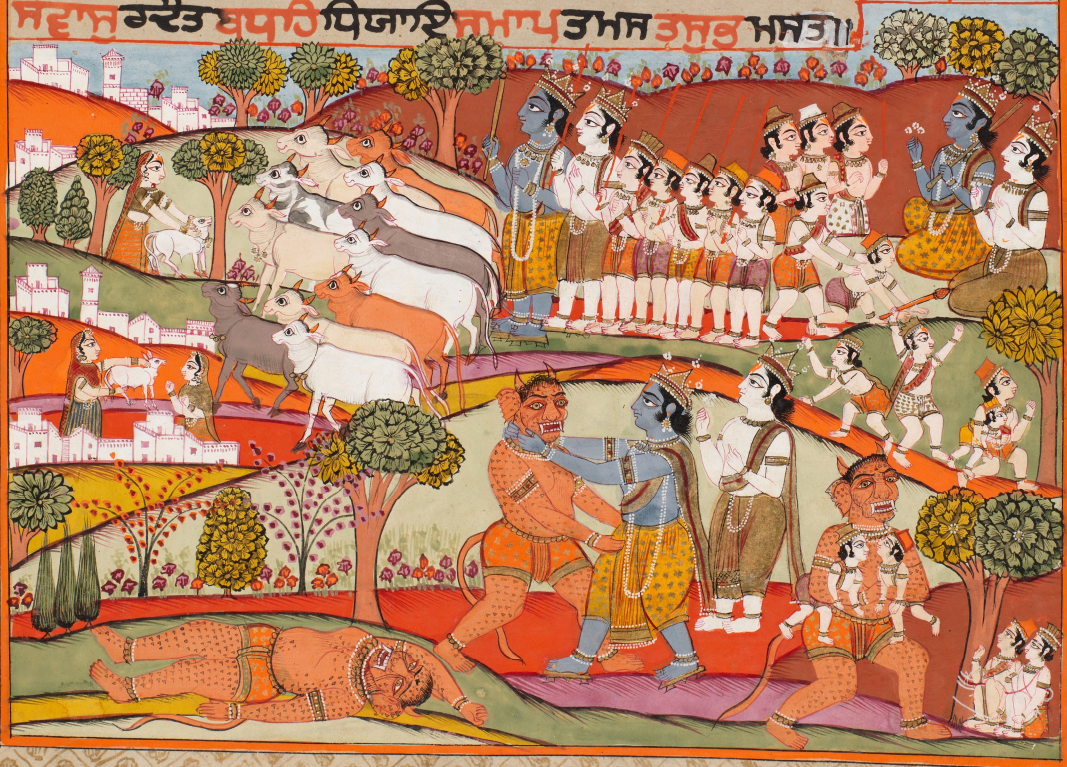 ਸਵਾਸ ਰਦੈਤ ਬਧਹਿ ਧਿਯਾਇ ਸਮਾਪ ਤਮਸ ਤਸੁਭ ਮਸਤੁ॥